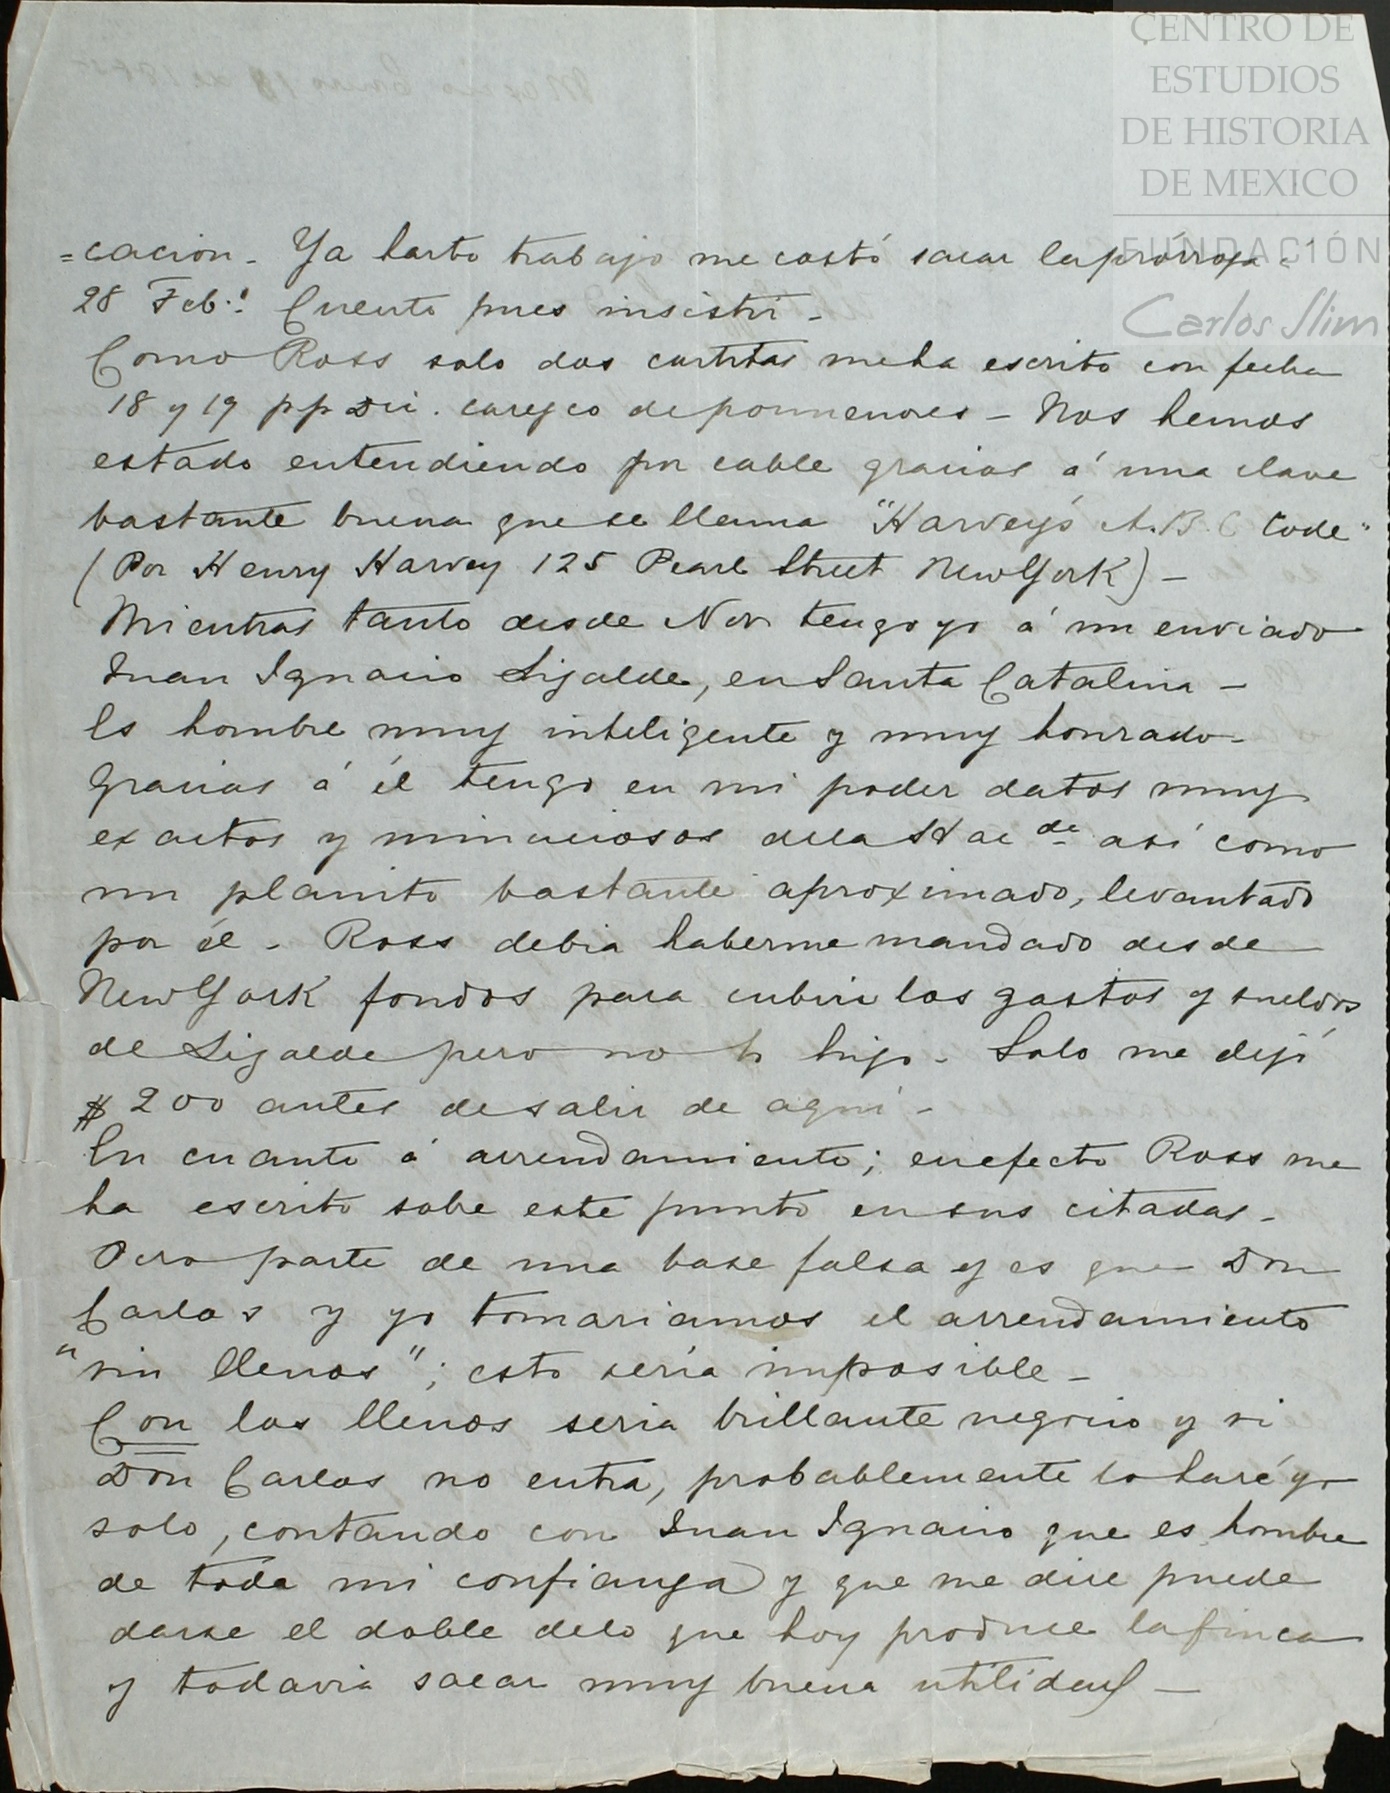 CENTRO DE
ESTUDIOS
DE HISTORIA
DE MEXICO
FUNDACIÓN
Carlos Slim
=cación - Ya harto trabajo me costó sacar la prórroga -
28 Feb.! Cuento pues insistir -
Como Ross solo dos cartitas me ha escrito con fecha
18 y 19 pp Dic. carezco de pormenores - Nos hemos
estado entendiendo por cable gracias á una clave
bastante buena que se llama "Harvey's A.B.C Code"
(Por Henry Harvey 125 Pearl Street New York) -
Mientras tanto desde Nov tengo yo á un enviado
Juan Ignacio Lizalde, en Santa Catalina -
Es hombre muy inteligente y muy honrado -
Gracias á él tengo en mi poder datos muy
exactos y minuciosos de la Hac de así como
un planito bastante aproximado, levantado
por él - Ross debia haberme mandado desde
New York fondos para cubrir los gastos y sueldos
de Lizalde pero no lo hizo - Solo me dejó
$ 200 antes de salir de aqui -
En cuanto á arrendamiento; en efecto Ross me
ha escrito sobre este punto en sus citadas -
Pero parte de una base falsa y es que Don
Carlos y yo tomariamos el arrendamiento
"sin llenos"; esto sería imposible -
Con los llenos seria brillante negocio y si
Don Carlos no entra, probablemente lo haré yo
solo, contando con Juan Ignacio que es hombre
de toda mi confianza y que me dice puede
darse el doble de lo que hoy produce la finca
y todavia sacar muy buena utilidad -